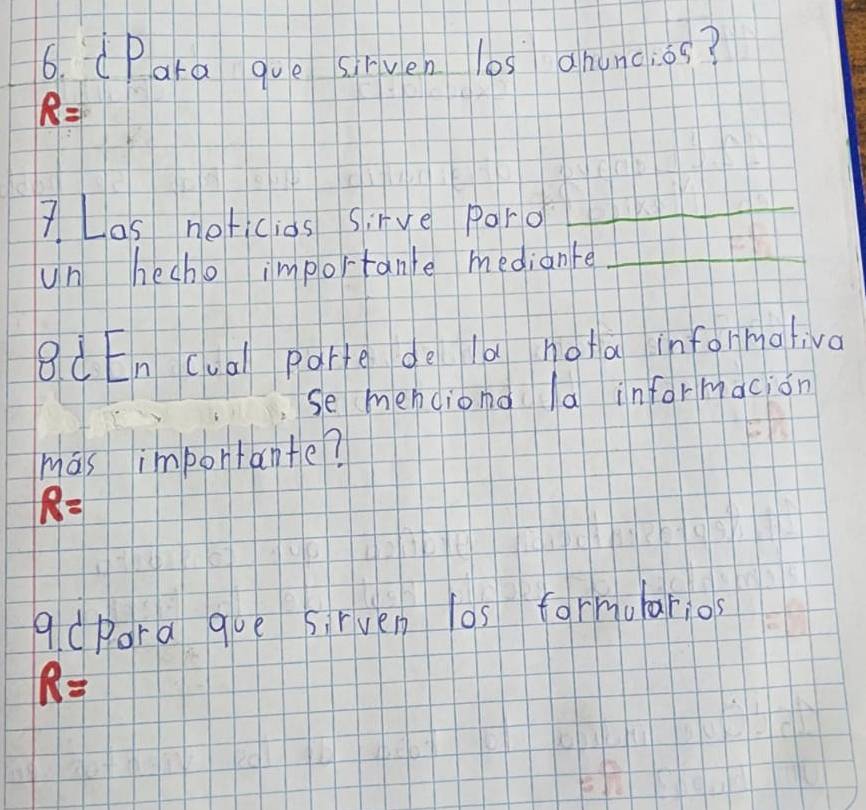 6. ¿Para que sirven los anunciós?
R=
7. Las noticias sirve para ____________
un hecho importante mediante ____________
8. ¿En cual parte de la nota informativa
se menciona la información
más importante?
R=
9. ¿Para que sirven los formularios
R=